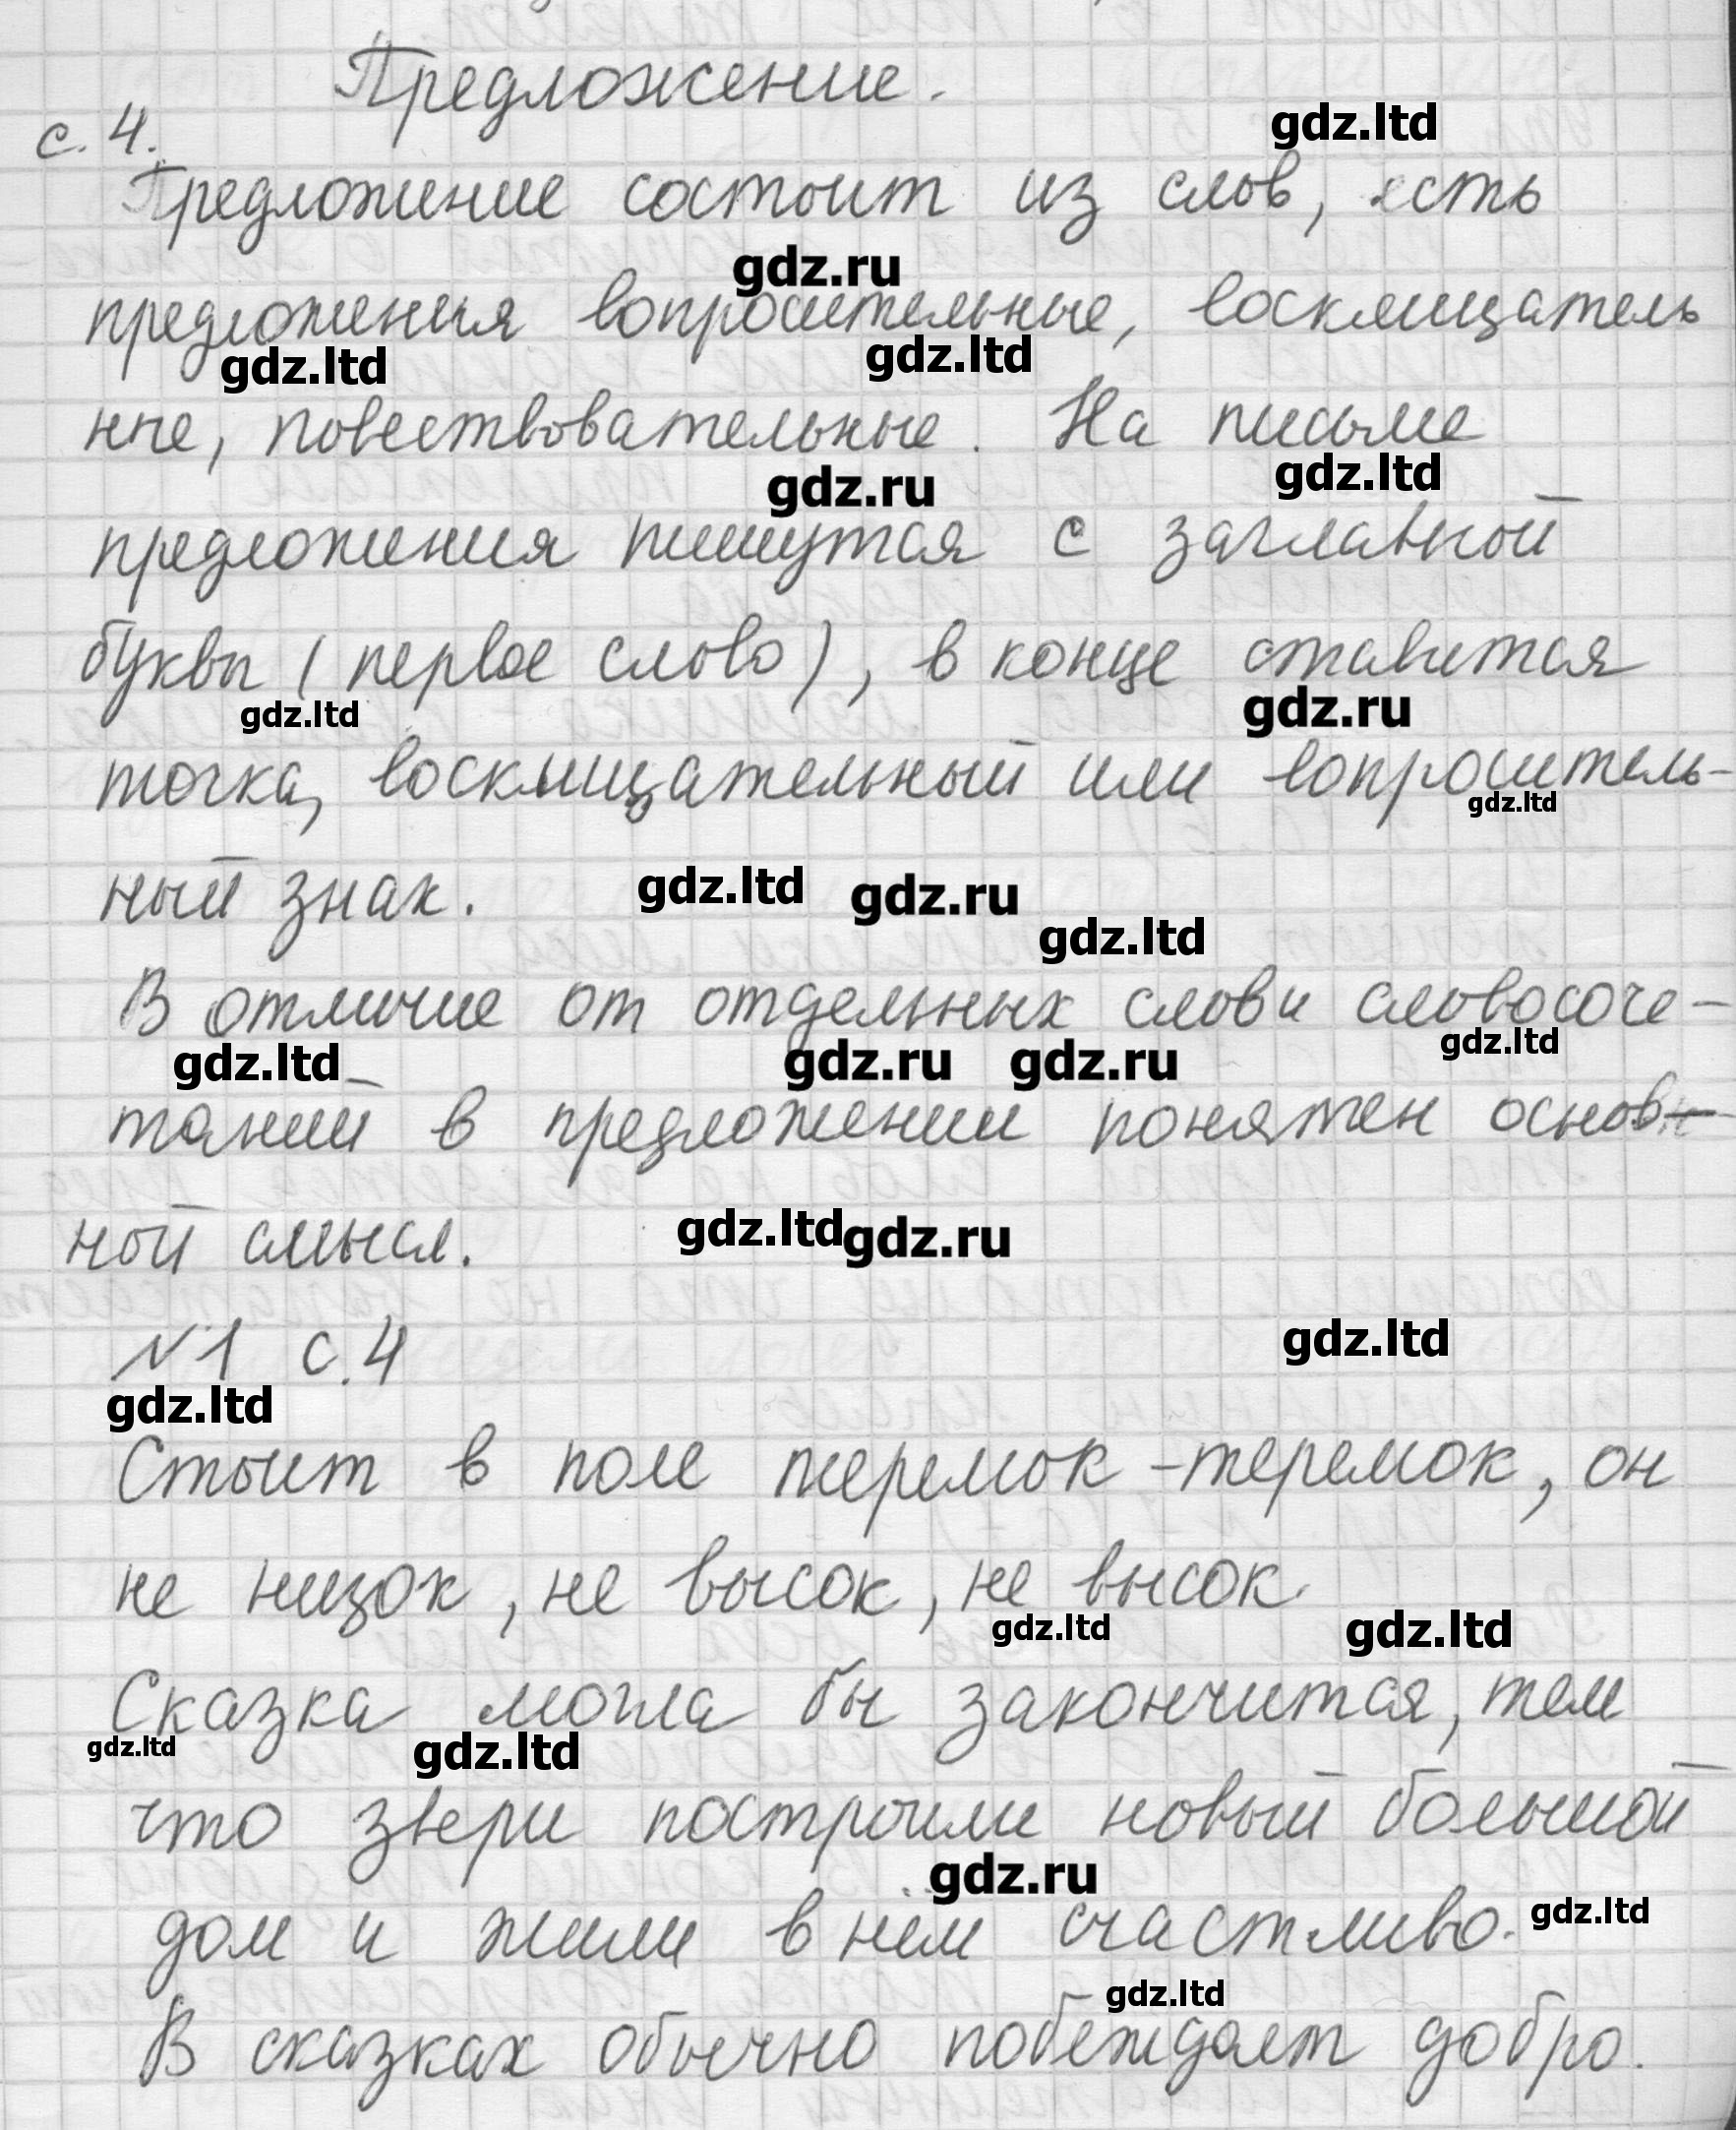 Предложение.
gdz.ltd
с. 4.
Предложение состоит из слов, есть
gdz.ru
предложения вопросительные, восклицатель
gdz.ltd gdz.ltd
ные, повествовательные. На письме
gdz.ru gdz.ltd
предложения пишутся с заглавной
буквы (первое слово), в конце ставится
gdz.ltd gdz.ru
точка, восклицательный или вопроситель-
gdz.ltd
ный знак.
gdz.ltd gdz.ru
gdz.ltd
В отличие от отдельных слов и словосоче-
gdz.ltd gdz.ru gdz.ru gdz.ltd
таний в предложении понятен основ-
ной смысл.
gdz.ltd gdz.ru
№1 с.4
gdz.ltd
gdz.ltd
Стоит в поле теремок-теремок, он
не низок, не высок, не высок.
gdz.ltd gdz.ltd
Сказка могла бы закончится, тем
gdz.ltd gdz.ltd
что звери построили новый большой
gdz.ru
дом и жили в нём счастливо.
gdz.ltd
gdz.ltd
В сказках обычно побеждает добро.